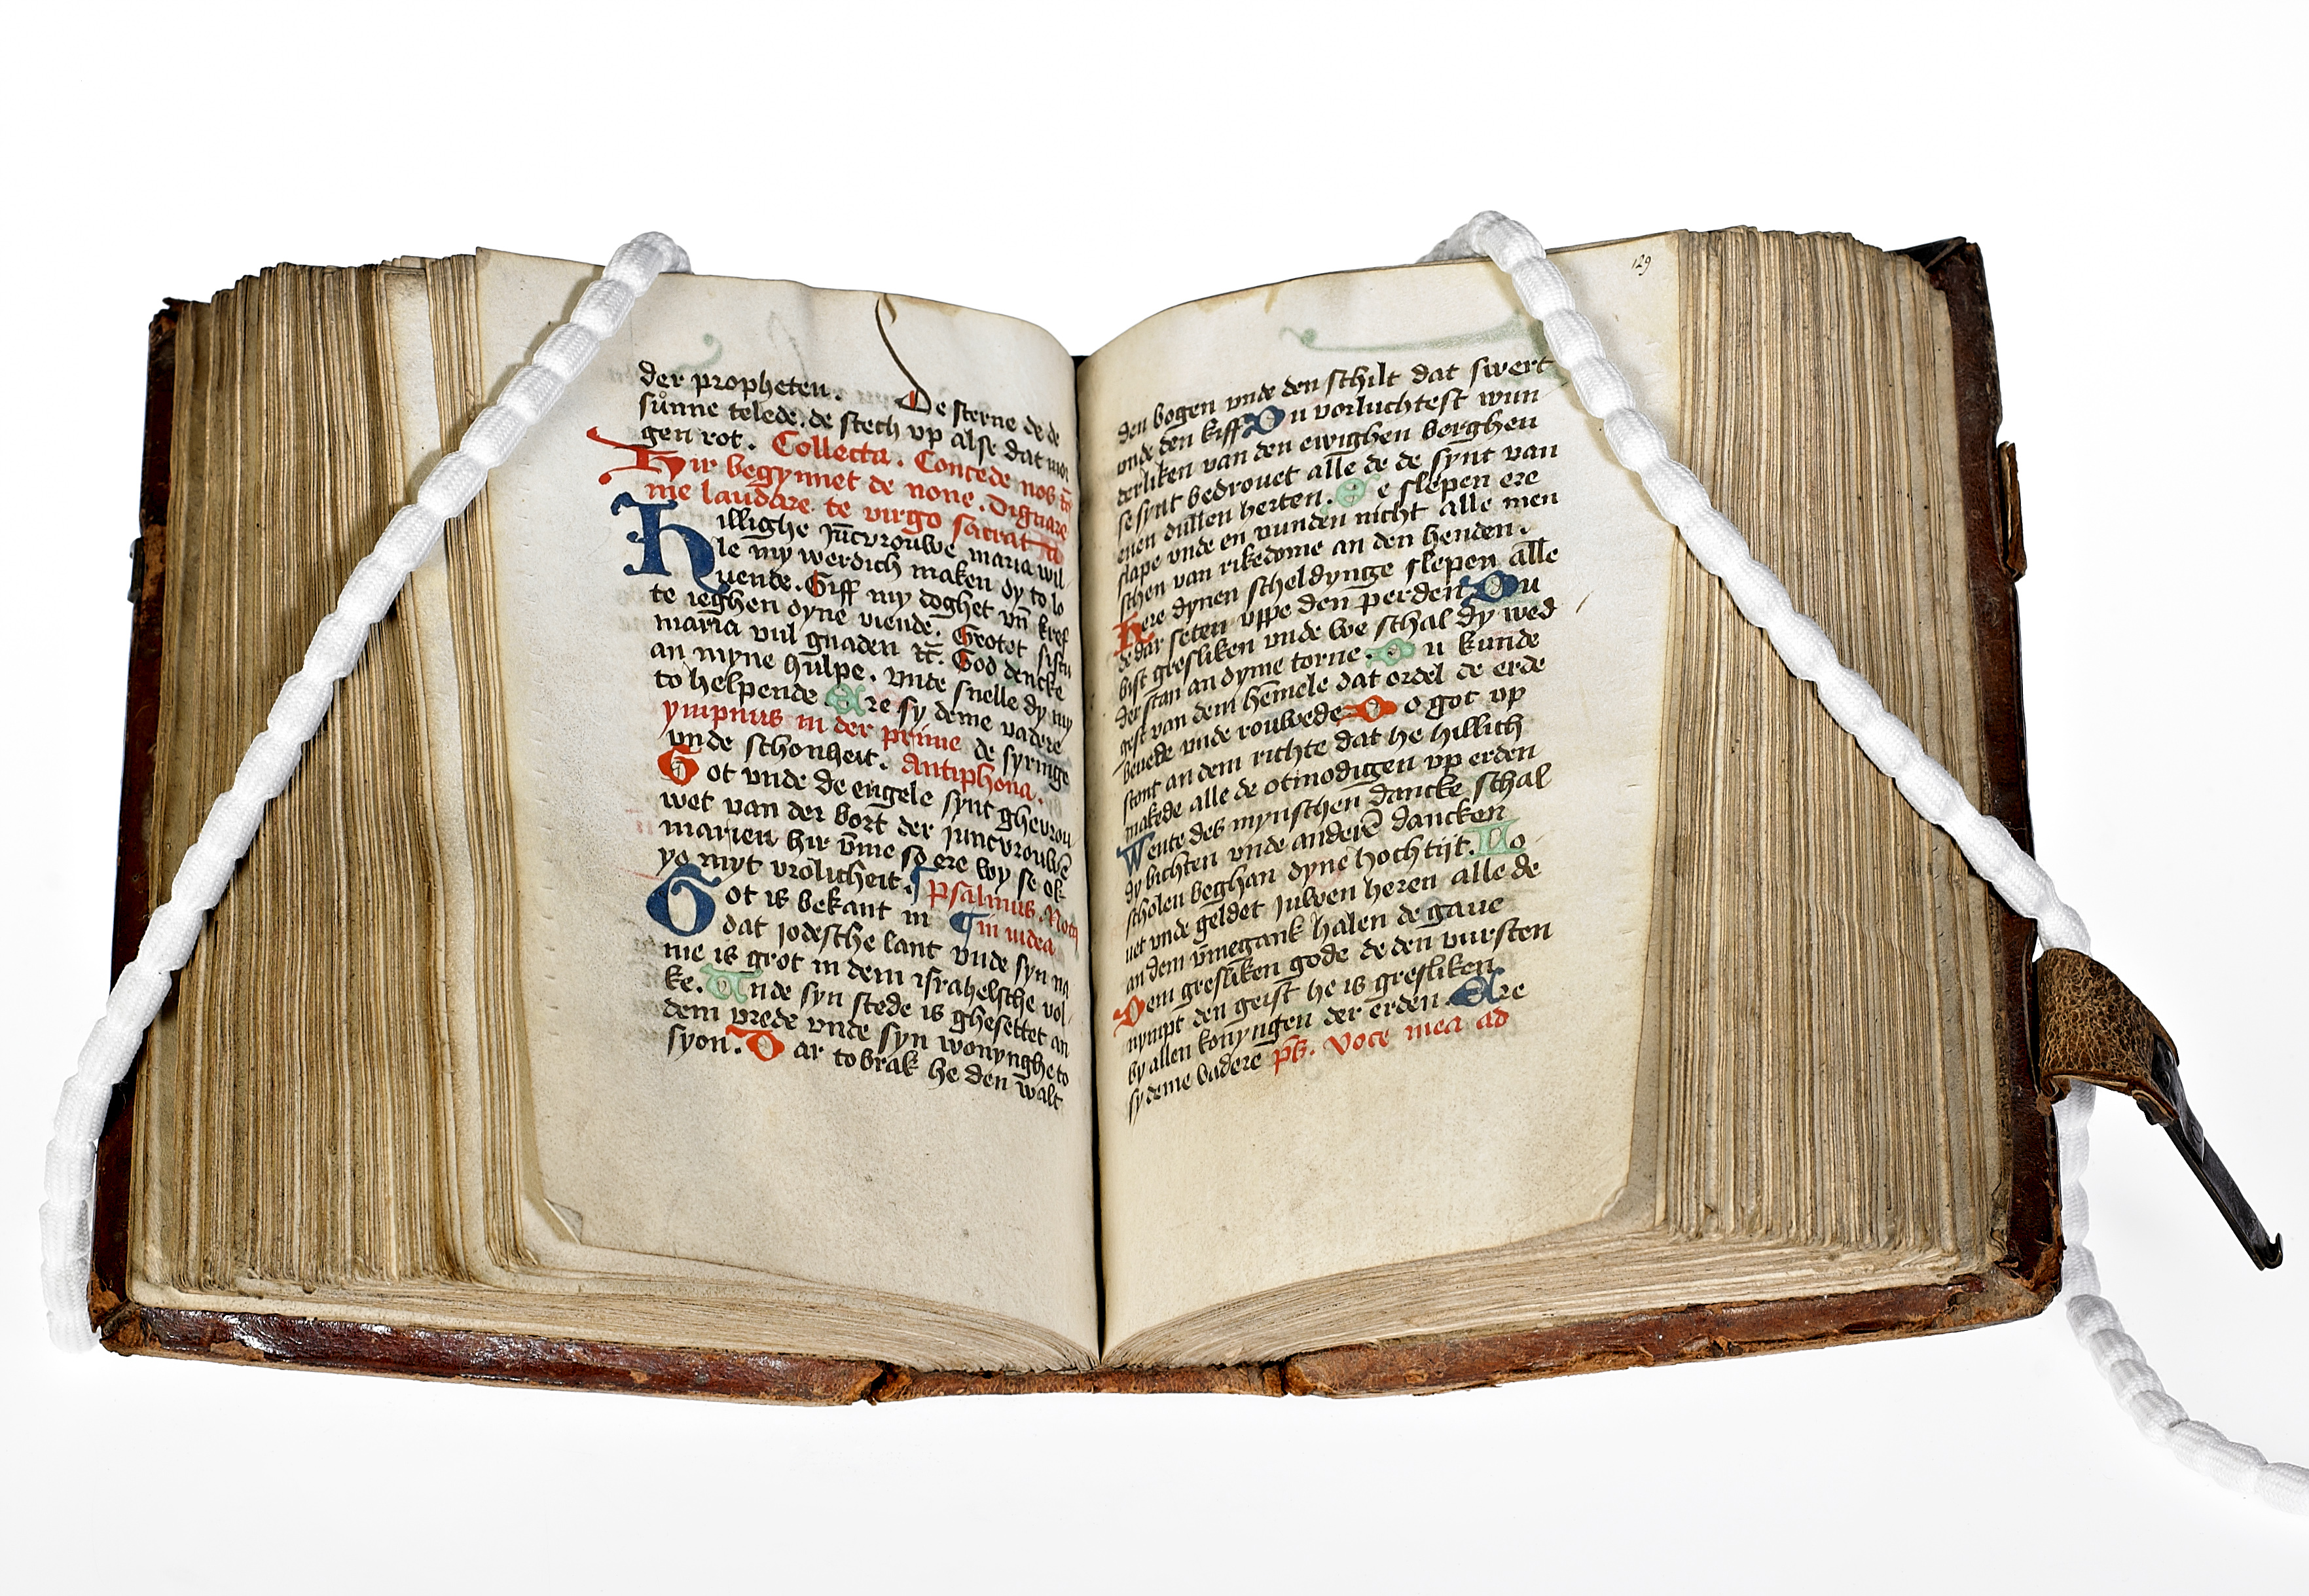 der propheten. De sterne de de
sunne telede. de stech up alse dat mor
gen rot. Collecta. Concede nos
Hir begynnet de none. Dignare
me laudare te virgo sacrata
Hillighe jūcvrouwe maria wil
le my werdich maken dy to lo
uende. Giff my doghet vn̄ kref
te ieghen dyne viende. Grotet sistu
maria vul gnaden ꝛc̄. God dencke
an myne hulpe. vnde snelle dy my
to helpende Ere sy deme vadere
ympnus in der prime de syringe
vnde schonheit. Antiphona.
Got vnde de engele synt ghevrou
wet van der bort der juncvrouwē
marien hir v̄me so ere wy se ok
yo myt vrolicheit. ¶ psalmus. Not9
Got is bekant in ¶ in iudea
dat jodesche lant vnde syn na
me is grot in dem israhelsche vol
ke. Unde syn stede is ghesettet an
dem vrede vnde syn wonynghe to
syon. Dar tobrak he den walt
129
den bogen vnde den schilt dat swert
vnde den kiff Du vorluchtest wun
derliken van den ewighen berghen
se synt bedrouet alle de de synt van
enen dullen herten. Se slepen ere
slape vnde en vunden nicht alle men
schen van rikedome an den henden.
Here dynen scheldynge slepen alle
de dar seten uppe den perden Du
bist gresliken vnde we schal dy wed
der stan an dyme torne. Du kunde
gest van dem hemele dat ordel de erde
beuede vnde rouwede Do got up
stont an dem richte dat he hillich
makede alle de otmodigen up erden
Wente des mynschen dancke schal
dy bichten vnde anderē dancken
scholen beghan dyne hochtijt. Lo
uet vnde geldet juwen heren alle de
an dem v̄megank halen de gaue
Dem gresliken gode de den vursten
nympt den geist he is gresliken
by allen konyngen der erden. Ere
sy deme vadere ps. Voce mea ad